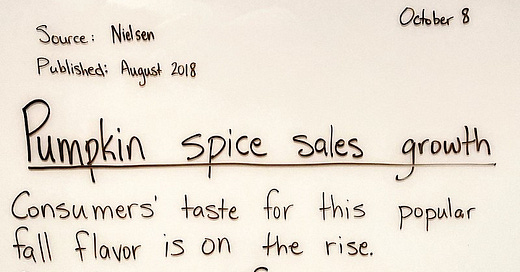 October 8
Source: Nielsen
Published: August 2018
Pumpkin spice sales growth
Consumers' taste for this popular
fall flavor is on the rise.